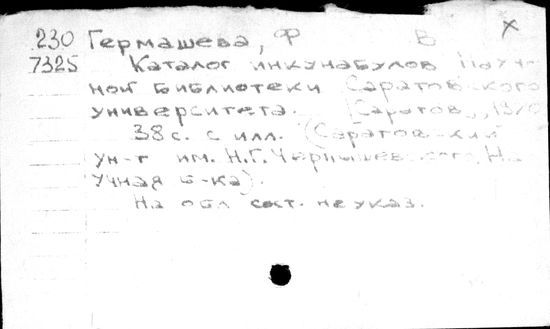 230 Гермашева, Ф В X
7325 Каталог инкунабулов Науч-
ной библиотеки Саратовского
университета. [Саратов,
38 с. с илл. (Саратовский
ун-т им. Н.Г. Чернышевского, На-
учная б-ка).
На обл сост. не указ.